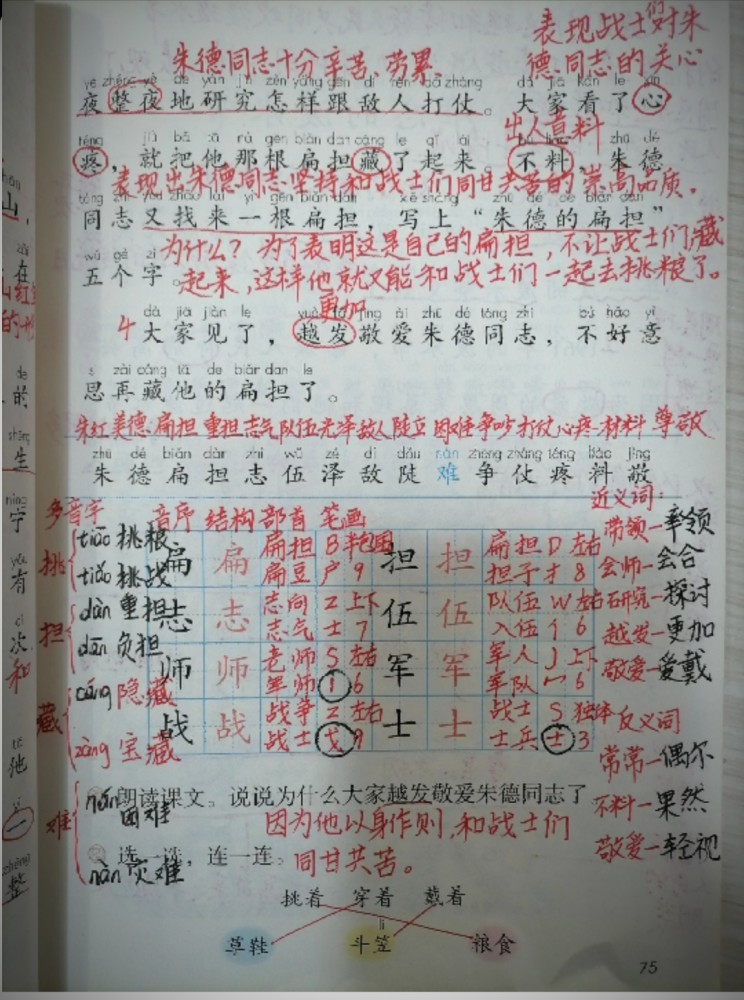 表现战士们对朱
德同志的关心
朱德同志十分辛苦、劳累
夜整夜地研究怎样跟敌人打仗。大家看了心
出人意料
疼，就把他那根扁担藏了起来。不料，朱德
表现出朱德同志坚持和战士们同甘共苦的崇高品质。
同志又找来一根扁担，写上“朱德的扁担”
为什么？为了表明这是自己的扁担，不让战士们藏
五个字。
起来，这样他就又能和战士们一起去挑粮了。
更加
4 大家见了，越发敬爱朱德同志，不好意
思再藏他的扁担了。
朱红 美德 扁担 重担 志气 队伍 光泽 敌人 陡立 困难 争吵 打仗 心疼 材料 尊敬
zhū dé biǎn dàn zhì wǔ zé dí dǒu nán zhēng zhàng téng liào jìng
朱 德 扁 担 志 伍 泽 敌 陡 难 争 仗 疼 料 敬
多音字
音序 结构 部首 笔画
近义词：
挑
tiāo 挑粮
tiǎo 挑战
担
dàn 重担
dān 负担
藏
cáng 隐藏
zàng 宝藏
难
nán 困难
nàn 灾难
扁 扁 扁担 B 半包围
扁豆 户 9
担 担 扁担 D 左右
担子 扌 8
志 志 志向 Z 上下
志气 士 7
伍 伍 队伍 W 左右
入伍 亻 6
师 师 老师 S 左右
军师 丨 6
军 军 军人 J 上下
军队 冖 6
战 战 战争 Z 左右
战士 戈 9
士 士 战士 S 独体
士兵 士 3
带领—率领
会师—会合
研究—探讨
越发—更加
敬爱—爱戴
反义词
常常—偶尔
不料—果然
敬爱—轻视
朗读课文。说说为什么大家越发敬爱朱德同志了
因为他以身作则，和战士们
选一选，连一连。
同甘共苦。
挑着 穿着 戴着
lì
草鞋 斗笠 粮食
75
山，
在
的
shēng
生
字
有
次
和
他
zhěng
整